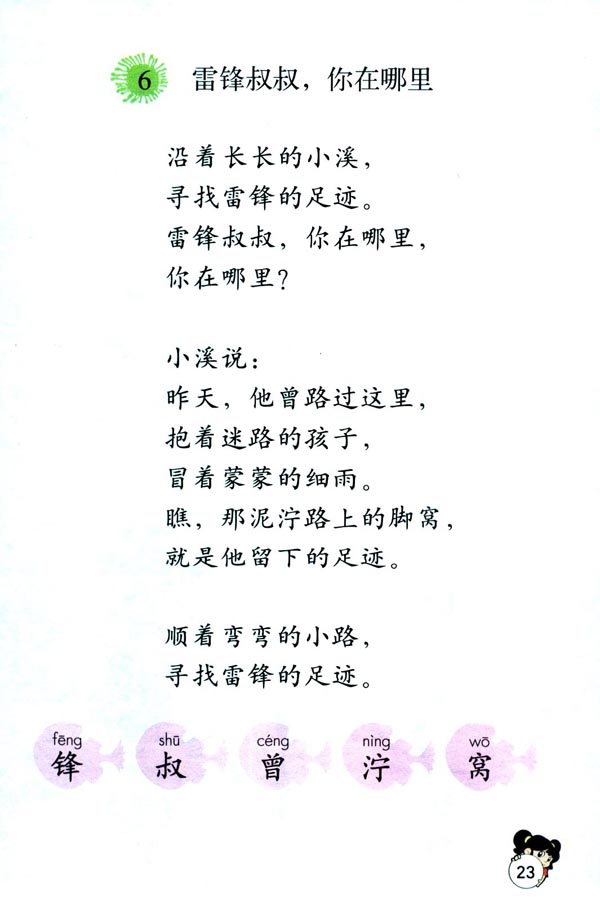 6 雷锋叔叔，你在哪里
沿着长长的小溪，
寻找雷锋的足迹。
雷锋叔叔，你在哪里，
你在哪里？
小溪说：
昨天，他曾路过这里，
抱着迷路的孩子，
冒着蒙蒙的细雨。
瞧，那泥泞路上的脚窝，
就是他留下的足迹。
顺着弯弯的小路，
寻找雷锋的足迹。
fēng shū céng nìng wō
锋 叔 曾 泞 窝
23